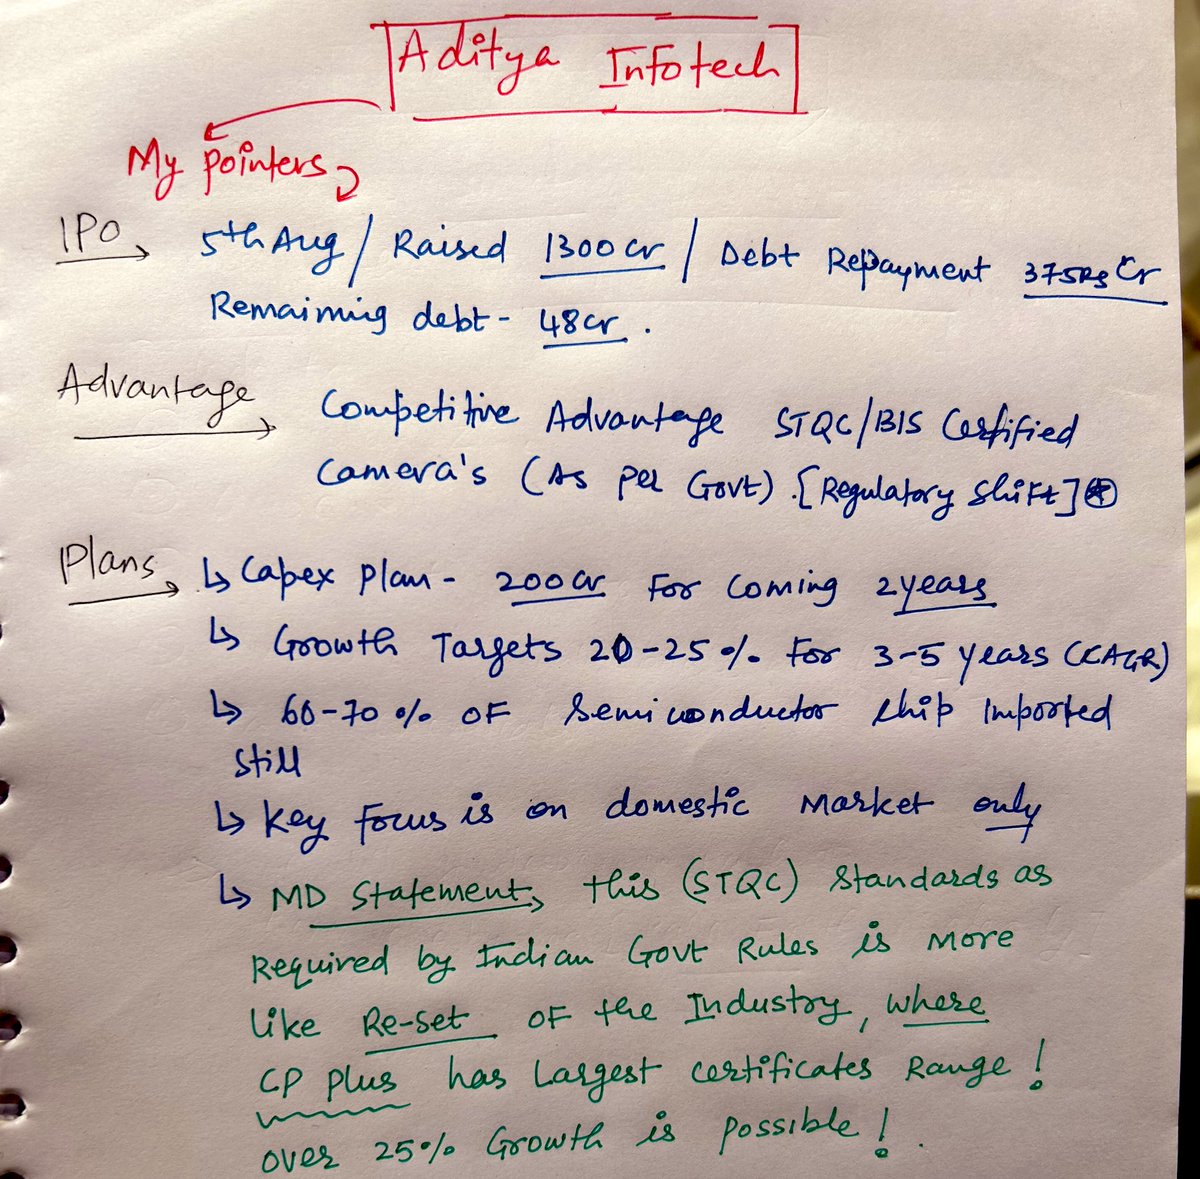 Aditya Infotech
My pointers
IPO → 5th Aug / Raised 1300 cr / Debt Repayment 375Rs Cr
Remaining debt - 48 cr .
Advantage → Competitive Advantage STQC/BIS Certified
Camera's (As per Govt) . [Regulatory Shift] ⊛
Plans → ↳ Capex plan - 200 cr For coming 2 years
↳ Growth Targets 20-25 % For 3-5 years (CAGR)
↳ 60-70 % OF Semiconductor chip imported
still
↳ Key Focus is on domestic Market only
↳ MD Statement → this (STQC) Standards as
Required by Indian Govt Rules is More
like Re-set OF the Industry, where
CP plus has Largest certificates Range !
over 25% Growth is possible ! .